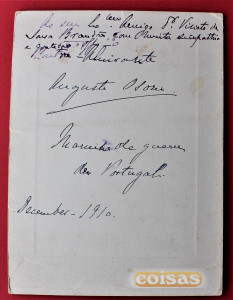 Ao seu Ex.mo Amigo Sr. Vicente de
Sousa Brandão, com muita sympathia
e gratidão
Almirante
Augusto
Marinha de guerra
de Portugal
December - 1910.
coisas